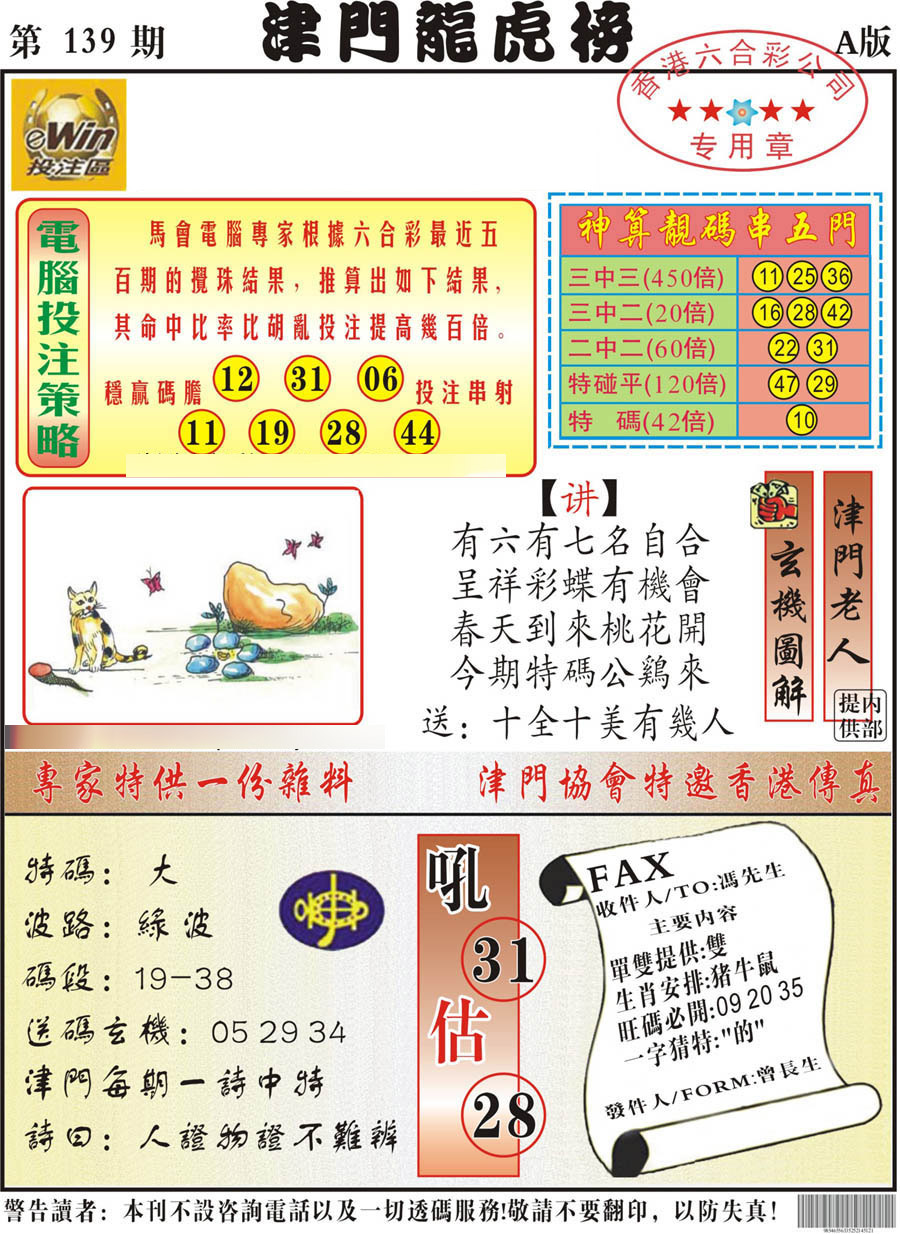 第 139 期
津門龍虎榜
A版
香港六合彩公司
专用章
eWin
投注區
電腦投注策略
馬會電腦專家根據六合彩最近五
百期的攪珠結果，推算出如下結果，
其命中比率比胡亂投注提高幾百倍。
穩贏碼膽 12 31 06 投注串射
11 19 28 44
神算靚碼串五門
三中三(450倍) 11 25 36
三中二(20倍) 16 28 42
二中二(60倍) 22 31
特碰平(120倍) 47 29
特 碼(42倍) 10
【讲】
有六有七名自合
呈祥彩蝶有機會
春天到來桃花開
今期特碼公鷄來
送：十全十美有幾人
玄機圖解
津門老人
内部提供
專家特供一份雜料
津門協會特邀香港傳真
特碼：大
波路：綠波
碼段：19-38
送碼玄機：05 29 34
津門每期一詩中特
詩曰：人證物證不難辨
吼
31
估
28
FAX
收件人/TO:馮先生
主要内容
單雙提供:雙
生肖安排:猪牛鼠
旺碼必開:09 20 35
一字猜特:"的"
發件人/FORM:曾長生
警告讀者：本刊不設咨詢電話以及一切透碼服務!敬請不要翻印，以防失真！